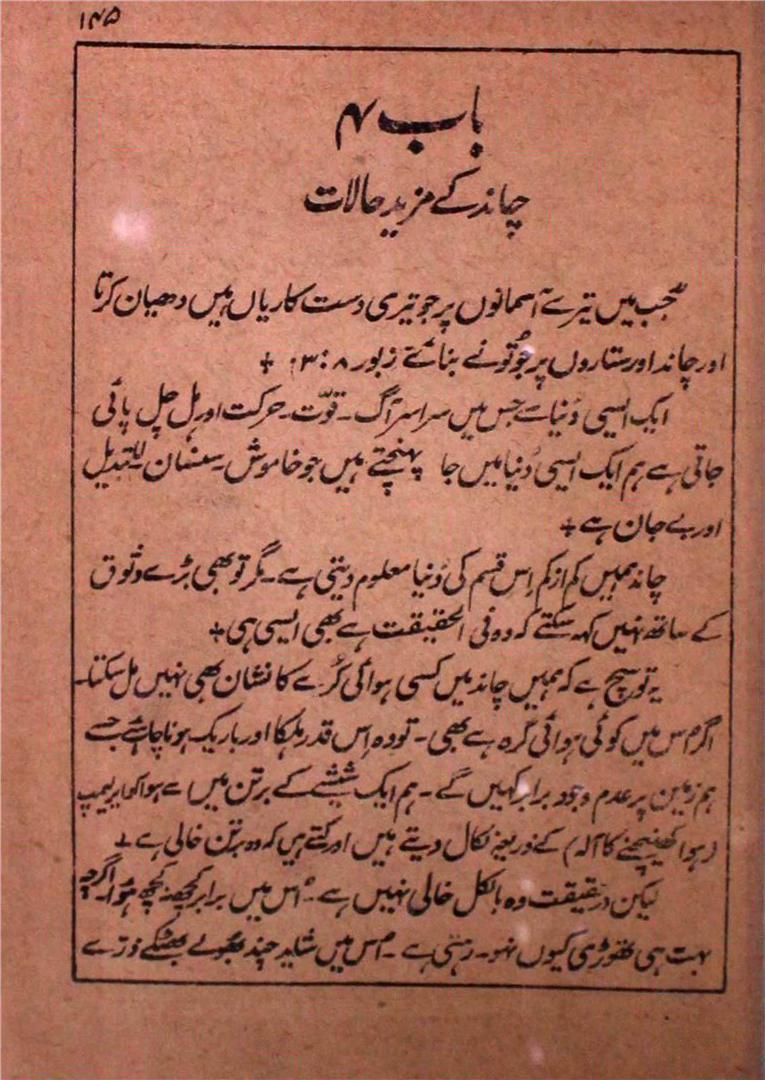 ۱۴۵
باب ۴
چاند کے مزید حالات
جب میں تیرے آسمانوں پر جو تیری دست کاریاں ہیں دھیان کرتا
اور چاند اور ستاروں پر جو تُو نے بنائے زبور ۸: ۳ +
ایک ایسی دُنیا سے جس میں سراسر آگ۔ قوّت۔ حرکت اور ہل چل پائی
جاتی ہے ہم ایک ایسی دُنیا میں جا پہنچتے ہیں جو خاموش۔ سنسان۔ لاتبدیل
اور بے جان ہے +
چاند ہمیں کم از کم اِس قسم کی دُنیا معلوم دیتی ہے۔ مگر تو بھی بڑے وثوق
کے ساتھ نہیں کہہ سکتے کہ وہ فی الحقیقت ہے بھی ایسی ہی +
یہ تو سچ ہے کہ ہمیں چاند میں کسی ہوائی کُرے کا نشان بھی نہیں مل سکتا۔
اگر اس میں کوئی ہوائی کرہ ہے بھی۔ تو وہ اِس قدر ہلکا اور باریک ہونا چاہئے جسے
ہم زمین پر عدم وجود برابر کہیں گے۔ ہم ایک شیشے کے برتن میں سے ہوا کو ایر پمپ
(ہوا کھینچنے کا آلہ) کے ذریعہ نکال دیتے ہیں اور کہتے ہیں کہ وہ برتن خالی ہے +
لیکن درحقیقت وہ بالکل خالی نہیں ہے۔ اُس میں برابر کچھ نہ کچھ ہوا۔ اگرچہ
بہت ہی تھوڑی کیوں نہو۔ رہتی ہے۔ اُس میں شاید چند بھولے بھٹکے ذرّے